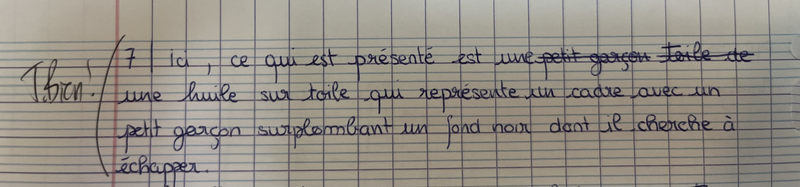 T.bien! 7) Ici, ce qui est présenté est une petit garçon toile de
une huile sur toile qui représente un cadre avec un
petit garçon surplombant un fond noir dont il cherche à
échapper.